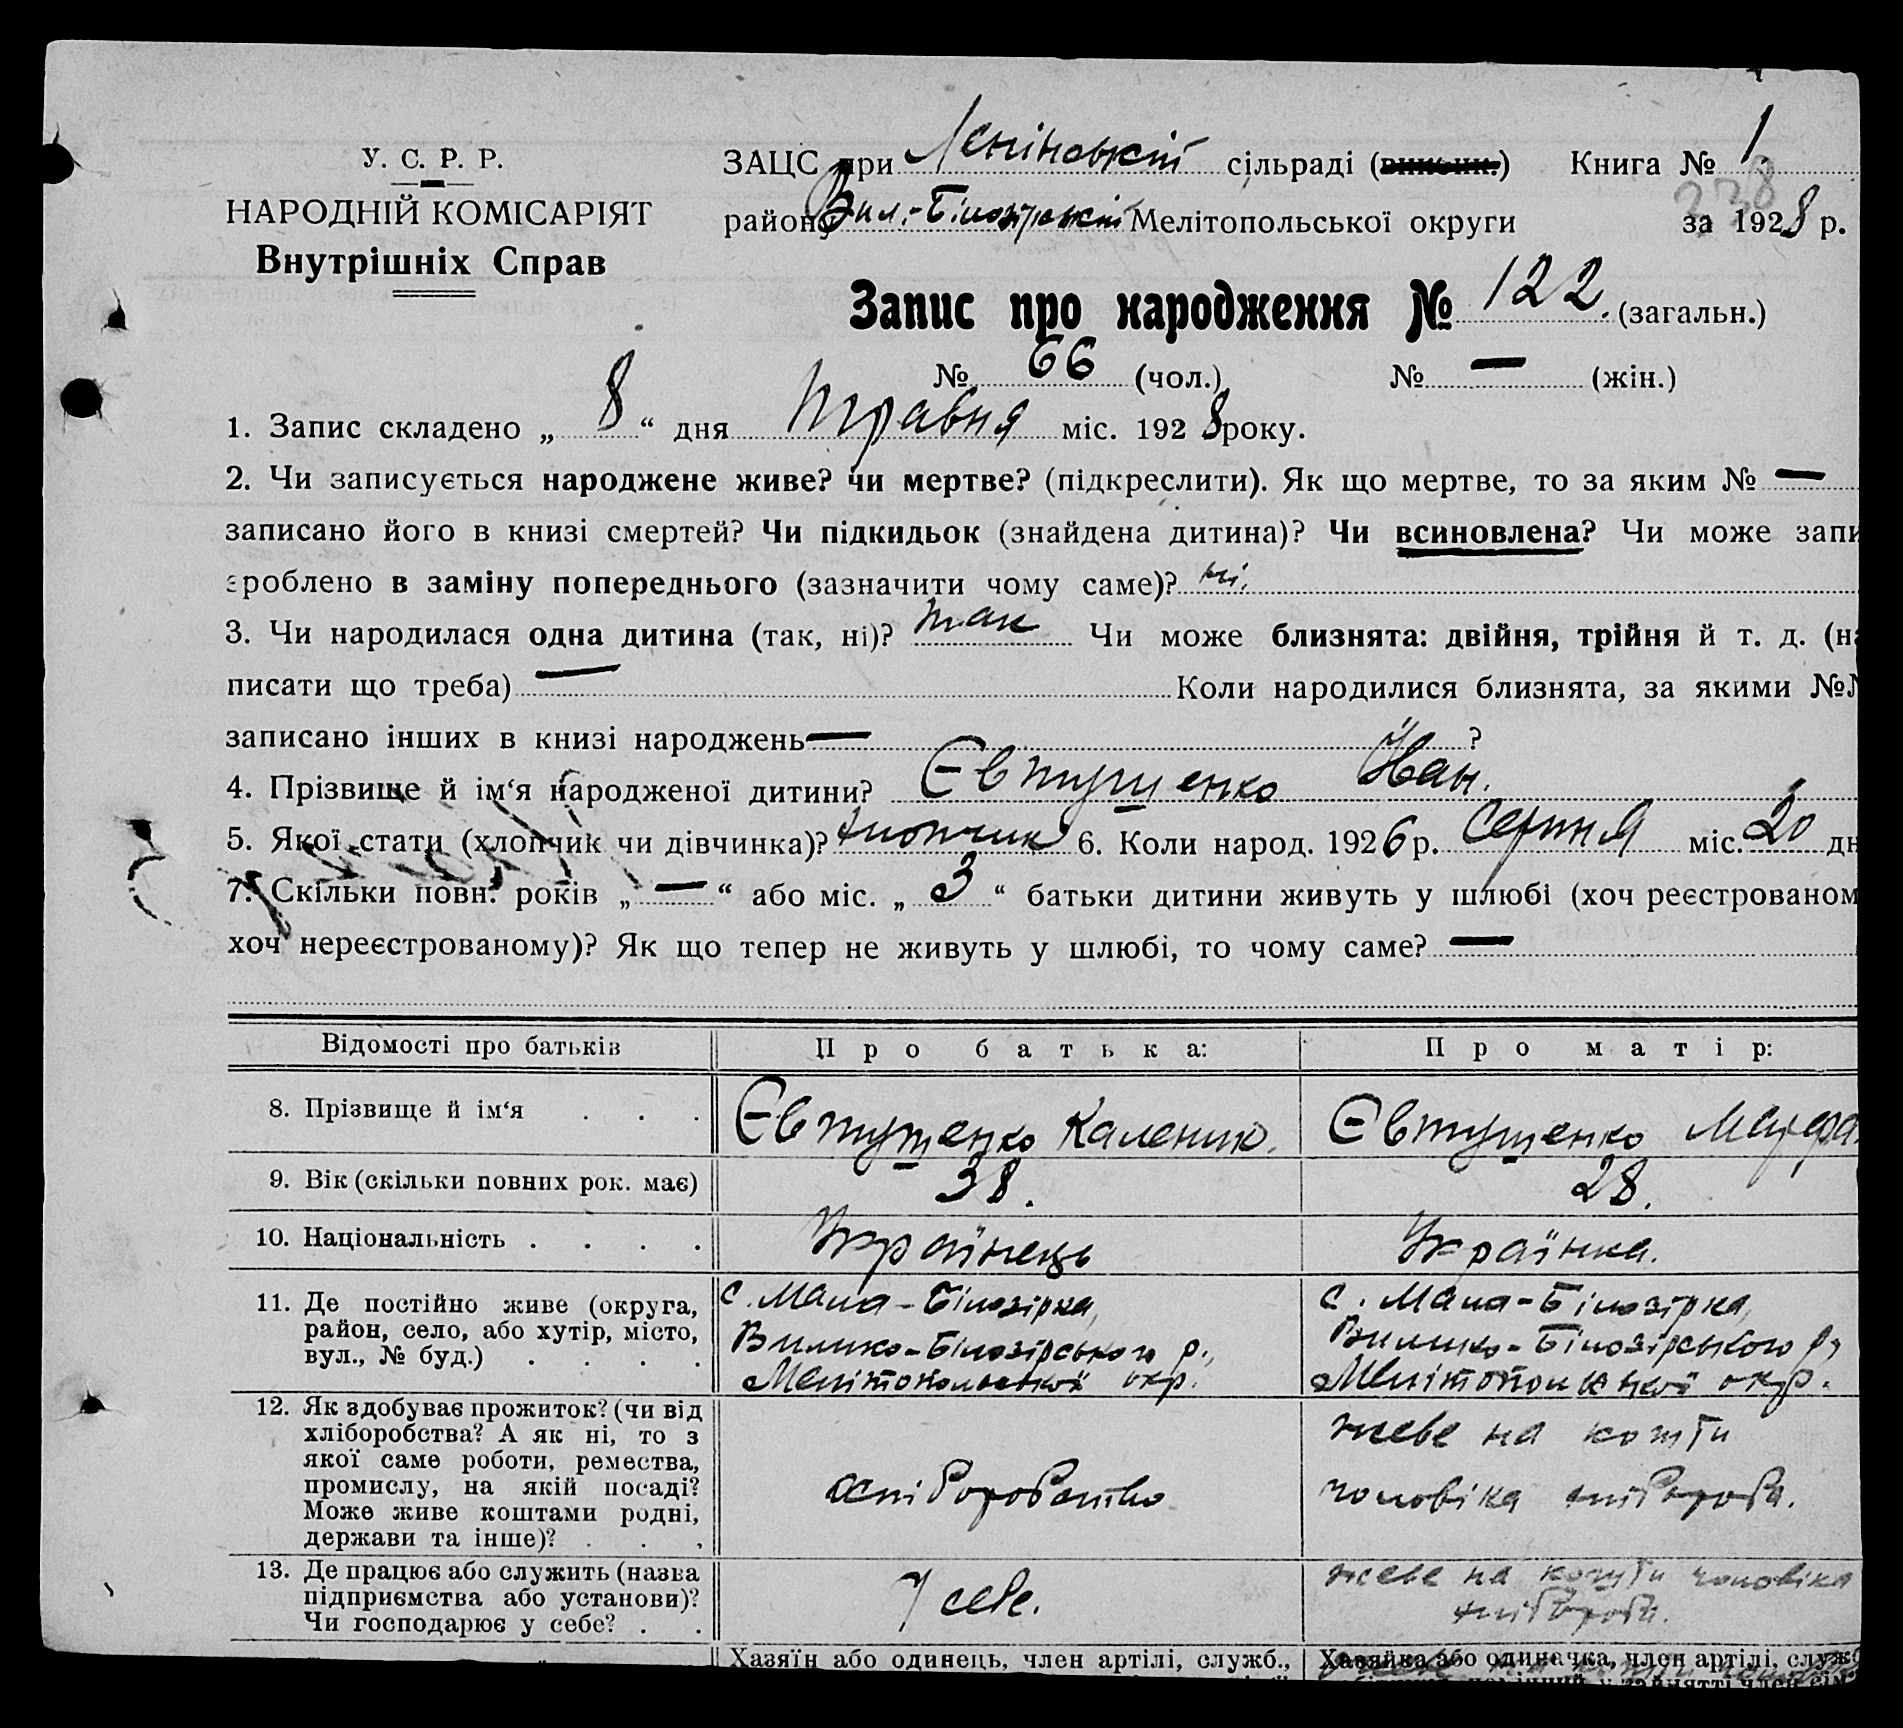 У. С. Р. Р.
НАРОДНІЙ КОМІСАРІЯТ
Внутрішніх Справ
ЗАЦС при Леніновській сільраді (виконк.) Книга № 1.
238
району Вил.-Білозірській Мелітопольської округи за 1928 р.
Запис про народження № 122. (загальн.)
№ 66 (чол.) № — (жін.)
1. Запис складено „ 8 “ дня травня міс. 1928 року.
2. Чи записується народжене живе? чи мертве? (підкреслити). Як що мертве, то за яким № —
записано його в книзі смертей? Чи підкидьок (знайдена дитина)? Чи всиновлена? Чи може запи
зроблено в заміну попереднього (зазначити чому саме)? ні.
3. Чи народилася одна дитина (так, ні)? так Чи може близнята: двійня, трійня й т. д. (на
писати що треба) — Коли народилися близнята, за якими №№
записано інших в книзі народжень — ?
4. Прізвище й ім‘я народженої дитини? Євтушенко Іван.
5. Якої стати (хлопчик чи дівчинка)? хлопчик 6. Коли народ. 1926 р. серпня міс. 20 дн
7. Скільки повн. років „ — “ або міс. „ 3 “ батьки дитини живуть у шлюбі (хоч реєстрованом
хоч нереєстрованому)? Як що тепер не живуть у шлюбі, то чому саме? —
Відомості про батьків Про батька: Про матір:
8. Прізвище й ім‘я . . . Євтушенко Каленик. Євтушенко Марфа.
9. Вік (скільки повних рок. має) 38. 28.
10. Національність . . . . Українець Українка.
11. Де постійно живе (округа,
район, село, або хутір, місто,
вул., № буд.) . . . .
с. Мала-Білозірка,
Вилико-Білозірського р.,
Мелітопольської окр.
с. Мала-Білозірка,
Вилико-Білозірського р,
Мелітопольської окр.
12. Як здобуває прожиток? (чи від
хліборобства? А як ні, то з
якої саме роботи, ремества,
промислу, на якій посаді?
Може живе коштами родні,
держави та інше)? . . .
хліборобство
живе на кошти
чоловіка хлібороба.
13. Де працює або служить (назва
підприємства або установи)?
Чи господарює у себе? . .
У себе.
живе на кошти чоловіка
хлібороба.
Хазяїн або одинець, член артілі, служб.,
Хазяйка або одиначка, член артілі, служб